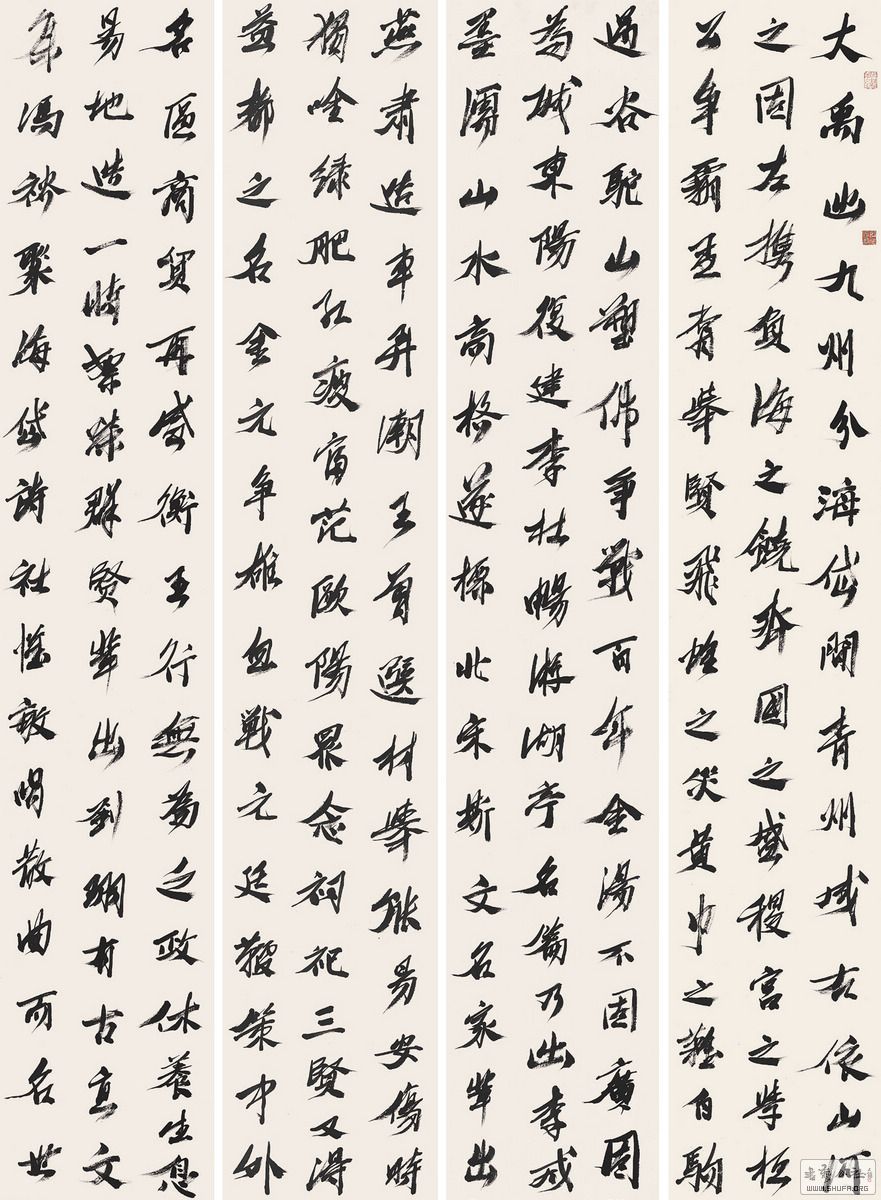 大禹出九州分海岱開青州域古依山河
之固左攜負海之饒齊國之盛稷宮之學桓
公爭霸孟嘗舉賢飛蝗之災黃巾之難白駒
過谷駝山塑佛爭戰百年金湯不固廣固
為城東陽復建李杜暢游湖亭名篇乃出李成
墨潤山水高格遂標北宋斯文名家輩出
燕肅造車升潮王曾選材舉能易安傷時
獨唫綠肥紅瘦富范歐陽眾念祠祀三賢又得
益都之名金元爭雄血戰元廷鞭策中外
名區商貿再盛衡王行無為之政休養生息
易地造一時樂蹟群賢輩出到珝有古直文
年馮裕聚海岱詩社惟敏唱散曲而名世
WWW.SHUFA.ORG